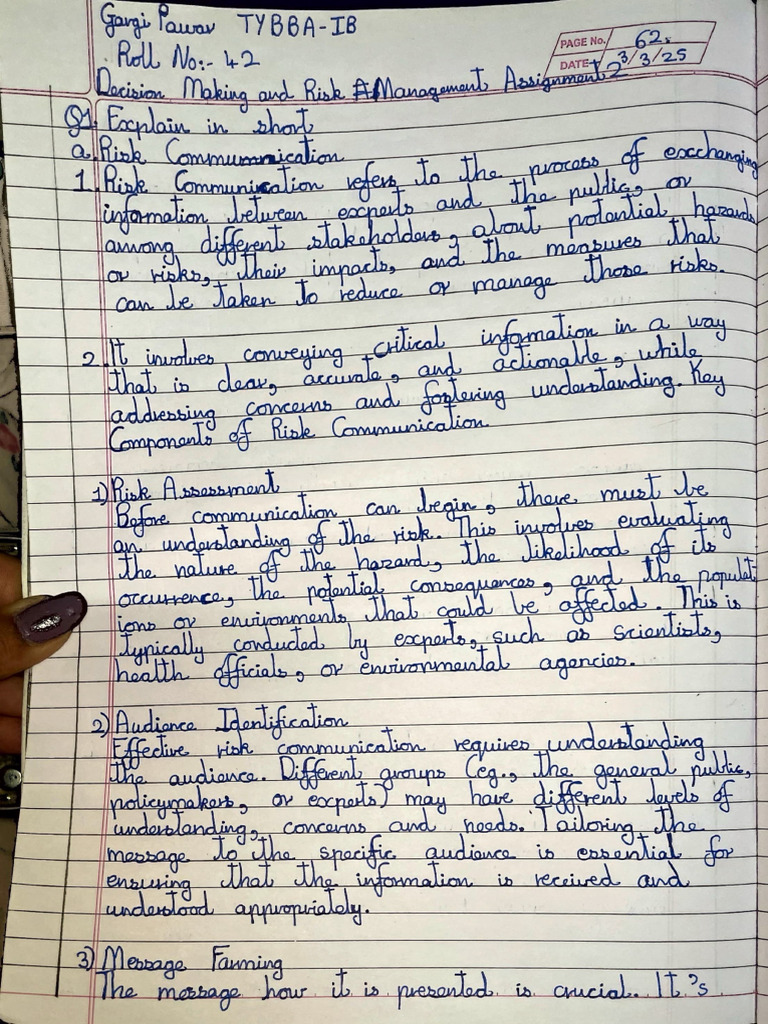 Gargi Pawar TYBBA-IB
Roll No:- 42
PAGE No. 62.
DATE 23/3/25
Decision Making and Risk Management Assignment
Q1. Explain in short
a. Risk Communication
1. Risk Communication refers to the process of excchanging
information between experts and the public, or
among different stakeholders, about potential hazards
or risks, their impacts, and the measures that
can be taken to reduce or manage those risks.
2. It involves conveying critical information in a way
that is clear, accurate, and actionable, while
addressing concerns and fostering understanding. Key
Components of Risk Communication
1) Risk Assessment
Before communication can begin, there must be
an understanding of the risk. This involves evaluating
the nature of the hazard, the likelihood of its
occurrence, the potential consequences, and the populat
ions or environments that could be affected. This is
typically conducted by experts, such as scientists,
health officials, or environmental agencies.
2) Audience Identification
Effective risk communication requires understanding
the audience. Different groups (eg., the general public,
policymakers, or experts) may have different levels of
understanding, concerns and needs. Tailoring the
message to the specific audience is essential for
ensuring that the information is received and
understood appropriately.
3) Message Farming
The message how it is presented is crucial. It's